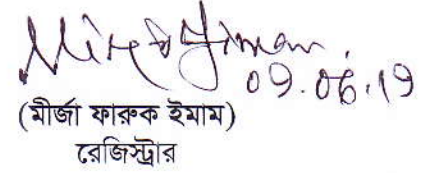 09.06.19
(মীর্জা ফারুক ইমাম)
রেজিস্ট্রার